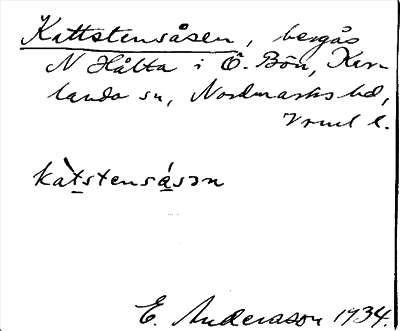 Kattstensåsen, bergås
N Hålta i Ö. Bön, Kar-
landa sn, Nordmarks hd,
Vrml l.
kàt̲stensá̲sən
E. Andersson 1934.